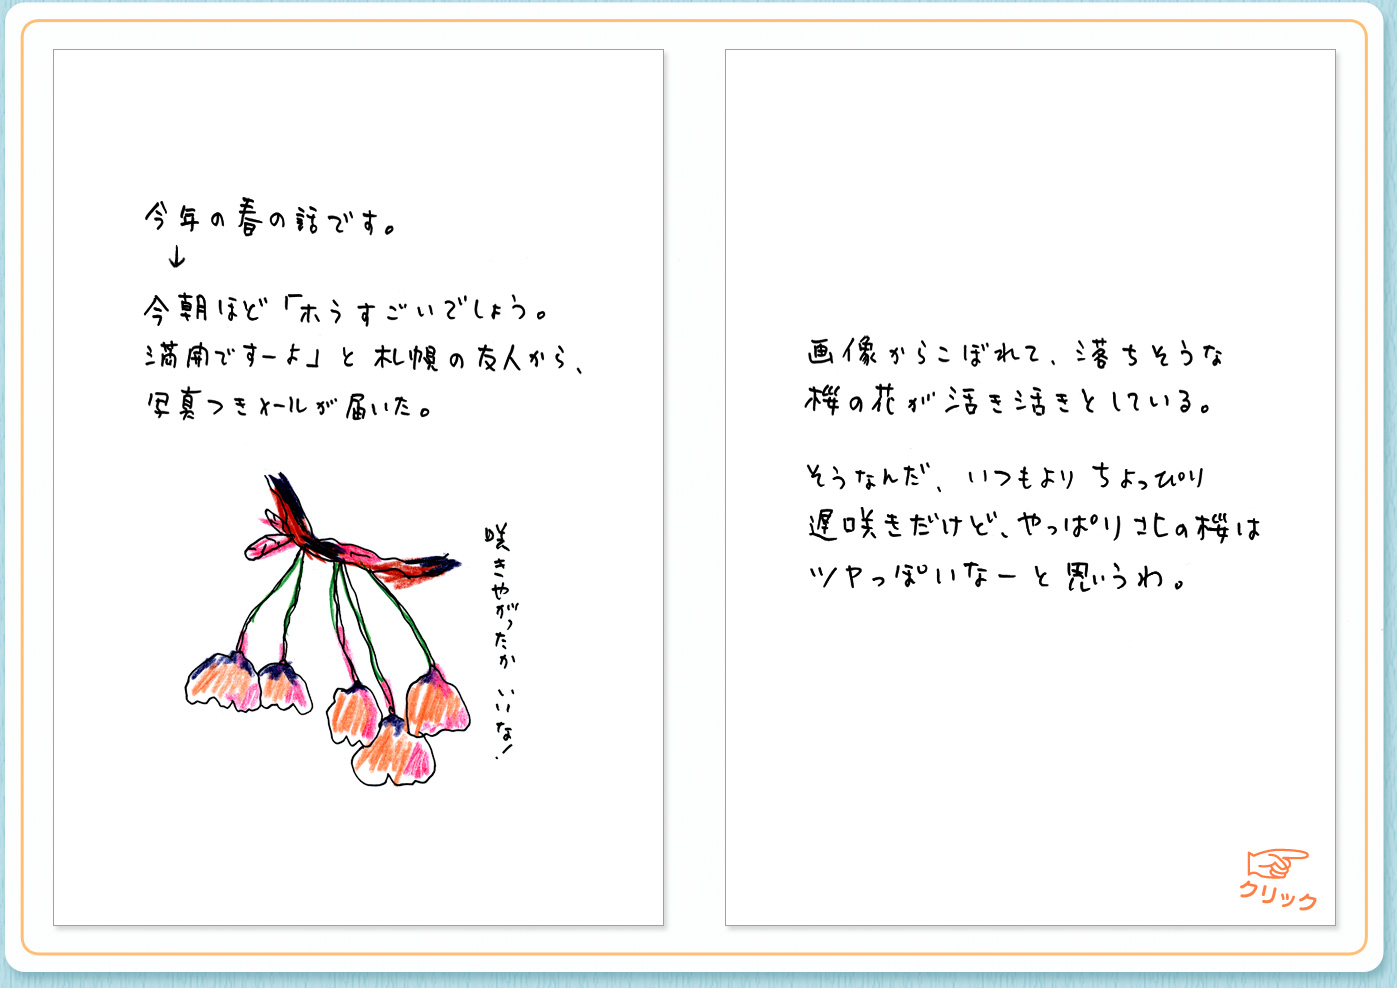 今年の春の話です。
↓
今朝ほど「ホラすごいでしょう。
満開ですーよ」と札幌の友人から、
写真つきメールが届いた。
咲きやがったか いいな!
画像からこぼれて、落ちそうな
桜の花が活き活きとしている。
そうなんだ、いつもよりちょっぴり
遅咲きだけど、やっぱり北の桜は
ツヤっぽいなーと思いうわ。
クリック